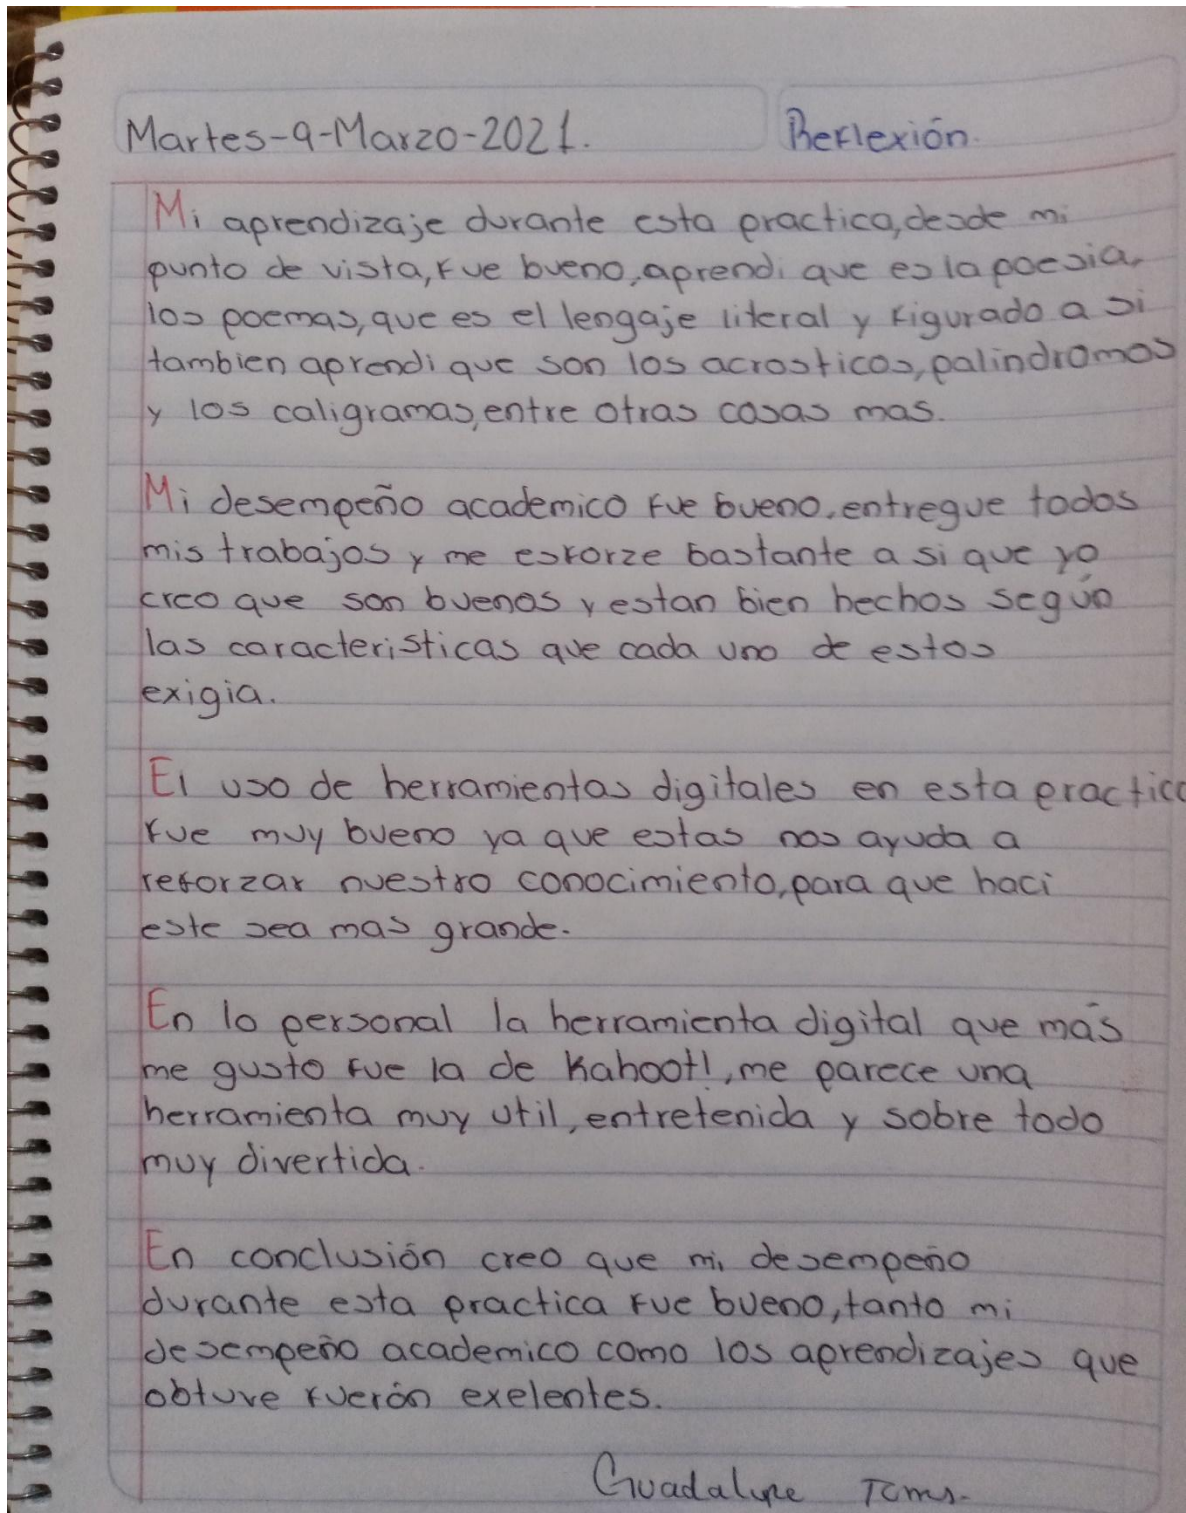 Martes-9-Marzo-2021. Reflexión.
Mi aprendizaje durante esta practica, desde mi
punto de vista, fue bueno, aprendi que es la poesia,
los poemas, que es el lengaje literal y figurado a si
tambien aprendi que son los acrosticos, palindromos
y los caligramas, entre otras cosas mas.
Mi desempeño academico fue bueno, entregue todos
mis trabajos y me esforze bastante a si que yo
creo que son buenos y estan bien hechos según
las caracteristicas que cada uno de estos
exigia.
El uso de herramientas digitales en esta practica
fue muy bueno ya que estas nos ayuda a
reforzar nuestro conocimiento, para que haci
este sea mas grande.
En lo personal la herramienta digital que más
me gusto fue la de Kahoot!, me parece una
herramienta muy util, entretenida y sobre todo
muy divertida.
En conclusión creo que mi desempeño
durante esta practica fue bueno, tanto mi
desempeño academico como los aprendizajes que
obtuve fuerón exelentes.
Guadalupe